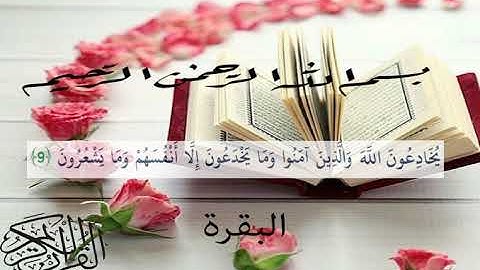 بسم الله الرحمن الرحيم
يُخَادِعُونَ اللَّهَ وَالَّذِينَ آمَنُوا وَمَا يَخْدَعُونَ إِلَّا أَنْفُسَهُمْ وَمَا يَشْعُرُونَ ﴿9﴾
البقرة
القرآن الكريم